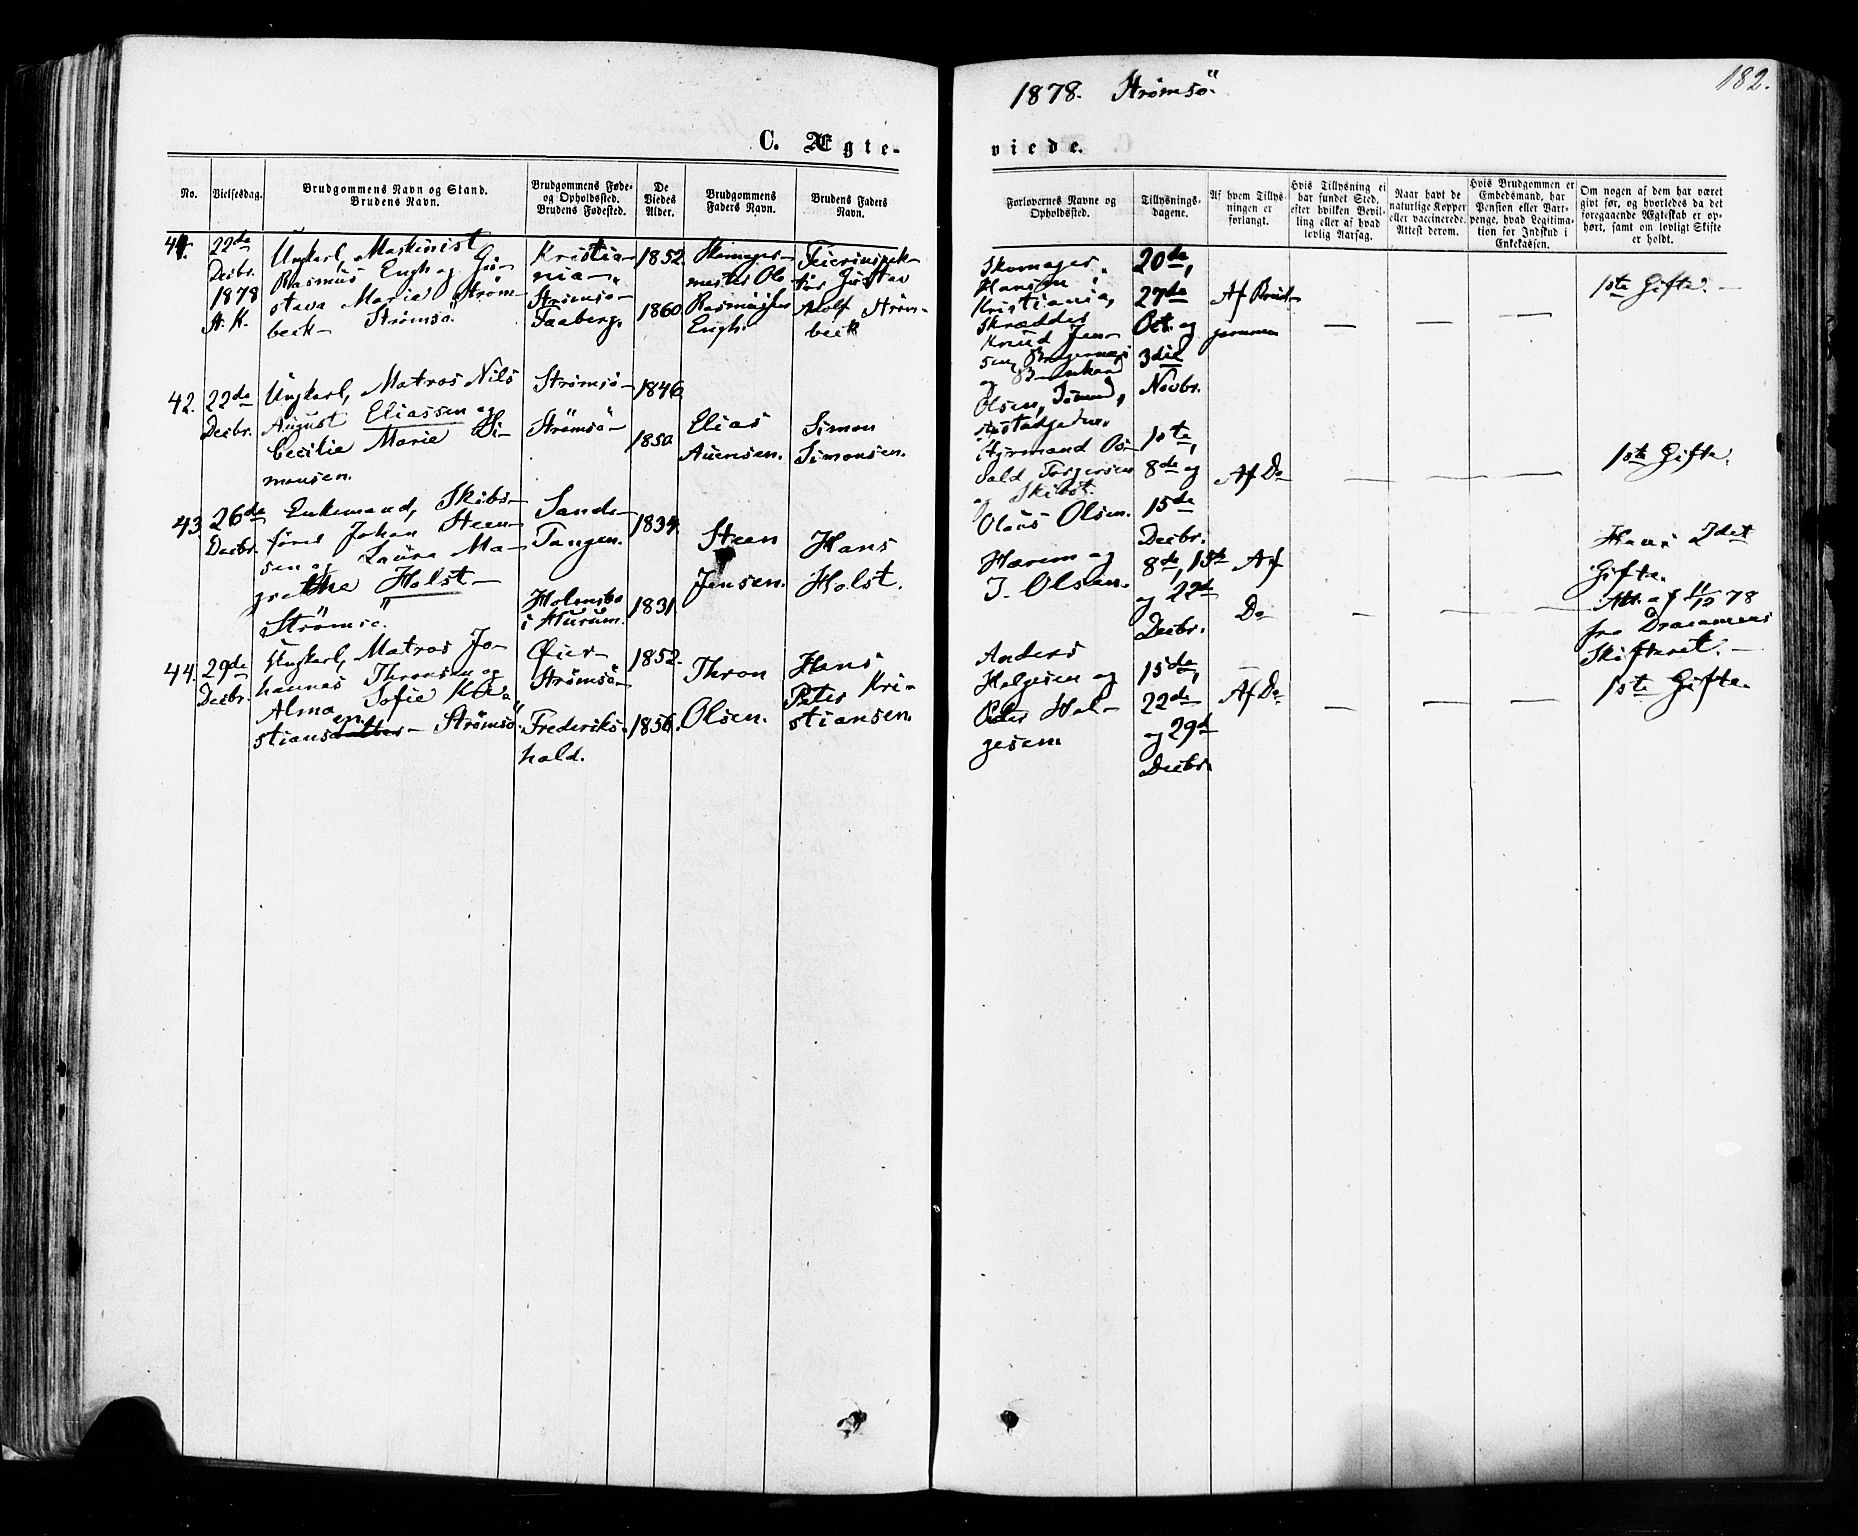 182.
1878. Strømsö.
C. Ægte-
viede.
No.
Vielsesdag.
Brudgommens Navn og Stand.
Brudens Navn.
Brudgommens Føde-
og Opholdssted.
Brudens Fødested.
De
Viedes
Alder.
Brudgommens
Faders Navn.
Brudens Faders
Navn.
Forlovernes Navne og
Opholdssted.
Tillysnings-
dagene.
Af hvem Tillys-
ningen er
forlangt.
Hvis Tillysning ei
har fundet Sted,
efter hvilken Bevil-
ling eller af hvad
lovlig Aarsag.
Naar havt de
naturlige Kopper
eller vaccinerede.
Attest derom.
Hvis Brudgommen er
Embedsmand, har
Pension eller Vart-
penge, hvad Legitima-
tion for Indskud i
Enkekassen.
Om nogen af dem har været
gift før, og hvorledes da det
foregaaende Ægteskab er op-
hørt, samt om lovligt Skifte
er holdt.
41.
22de
Decbr.
1878
A. K.
Ungkarl, Maskinist
Rasmus Engh og Gu-
stava Marie Strøm-
beck – Strømsö.
Kristia-
nia –
Strømsö –
Faaberg.
1852.
1860
Skomager-
mester Ole
Rasmussen
Engh.
Feierinspek-
tör Gustav
Adolf Strøm-
beck
Skomager
Hansen,
Kristiania,
Skrædder
Knud Jen-
sen, Bragernæs
og
Olsen,
20de,
27de
Oct. og
3die
Novbr.
Af Brud-
gommen
—
—
—
1ste Gifte. –
42.
22de
Decbr.
Ungkarl, Matros Nils
August Eliassen og
Cecilie Marie Si-
monsen.
Strømsö –
Strømsö –
1846
1850
Elias
Auensen.
Simon
Simonsen.
Styrmand Os-
vald Torgersen
og Skibst.
Olaus Olsen.
1ste,
8de og
15de
Decbr.
Af Do
—
—
—
1ste Gifte.
43.
26de
Decbr.
Enkemand, Skibs-
fører Johan Steen-
sen og Laura Ma-
grethe Holst –
Strömsö.
Sande –
Tangen.
Holmsbo
i Hurum.
1834.
1831
Steen
Jensen.
Hans
Holst.
Harem og
J. Olsen.
8de, 15de
og 22de
Decbr.
Af
Do
—
—
—
Hans 2det
Gifte.
Att. af 11/12 78
fra Drammens
Skifteret. –
44.
29de
Decbr.
Ungkarl, Matros Jo-
hannes Thronsen og
Alma Sofie Kri-
stiansen – Strömsö.
Øier –
Strømsö –
Frederiks-
hald.
1852.
1856.
Thron
Olsen.
Hans
Peter Kri-
stiansen.
Anders
Helgesen og
Peder Hel-
gesen.
15de,
22de
og 29de
Decbr.
Af Do
—
—
—
1ste Gifte.